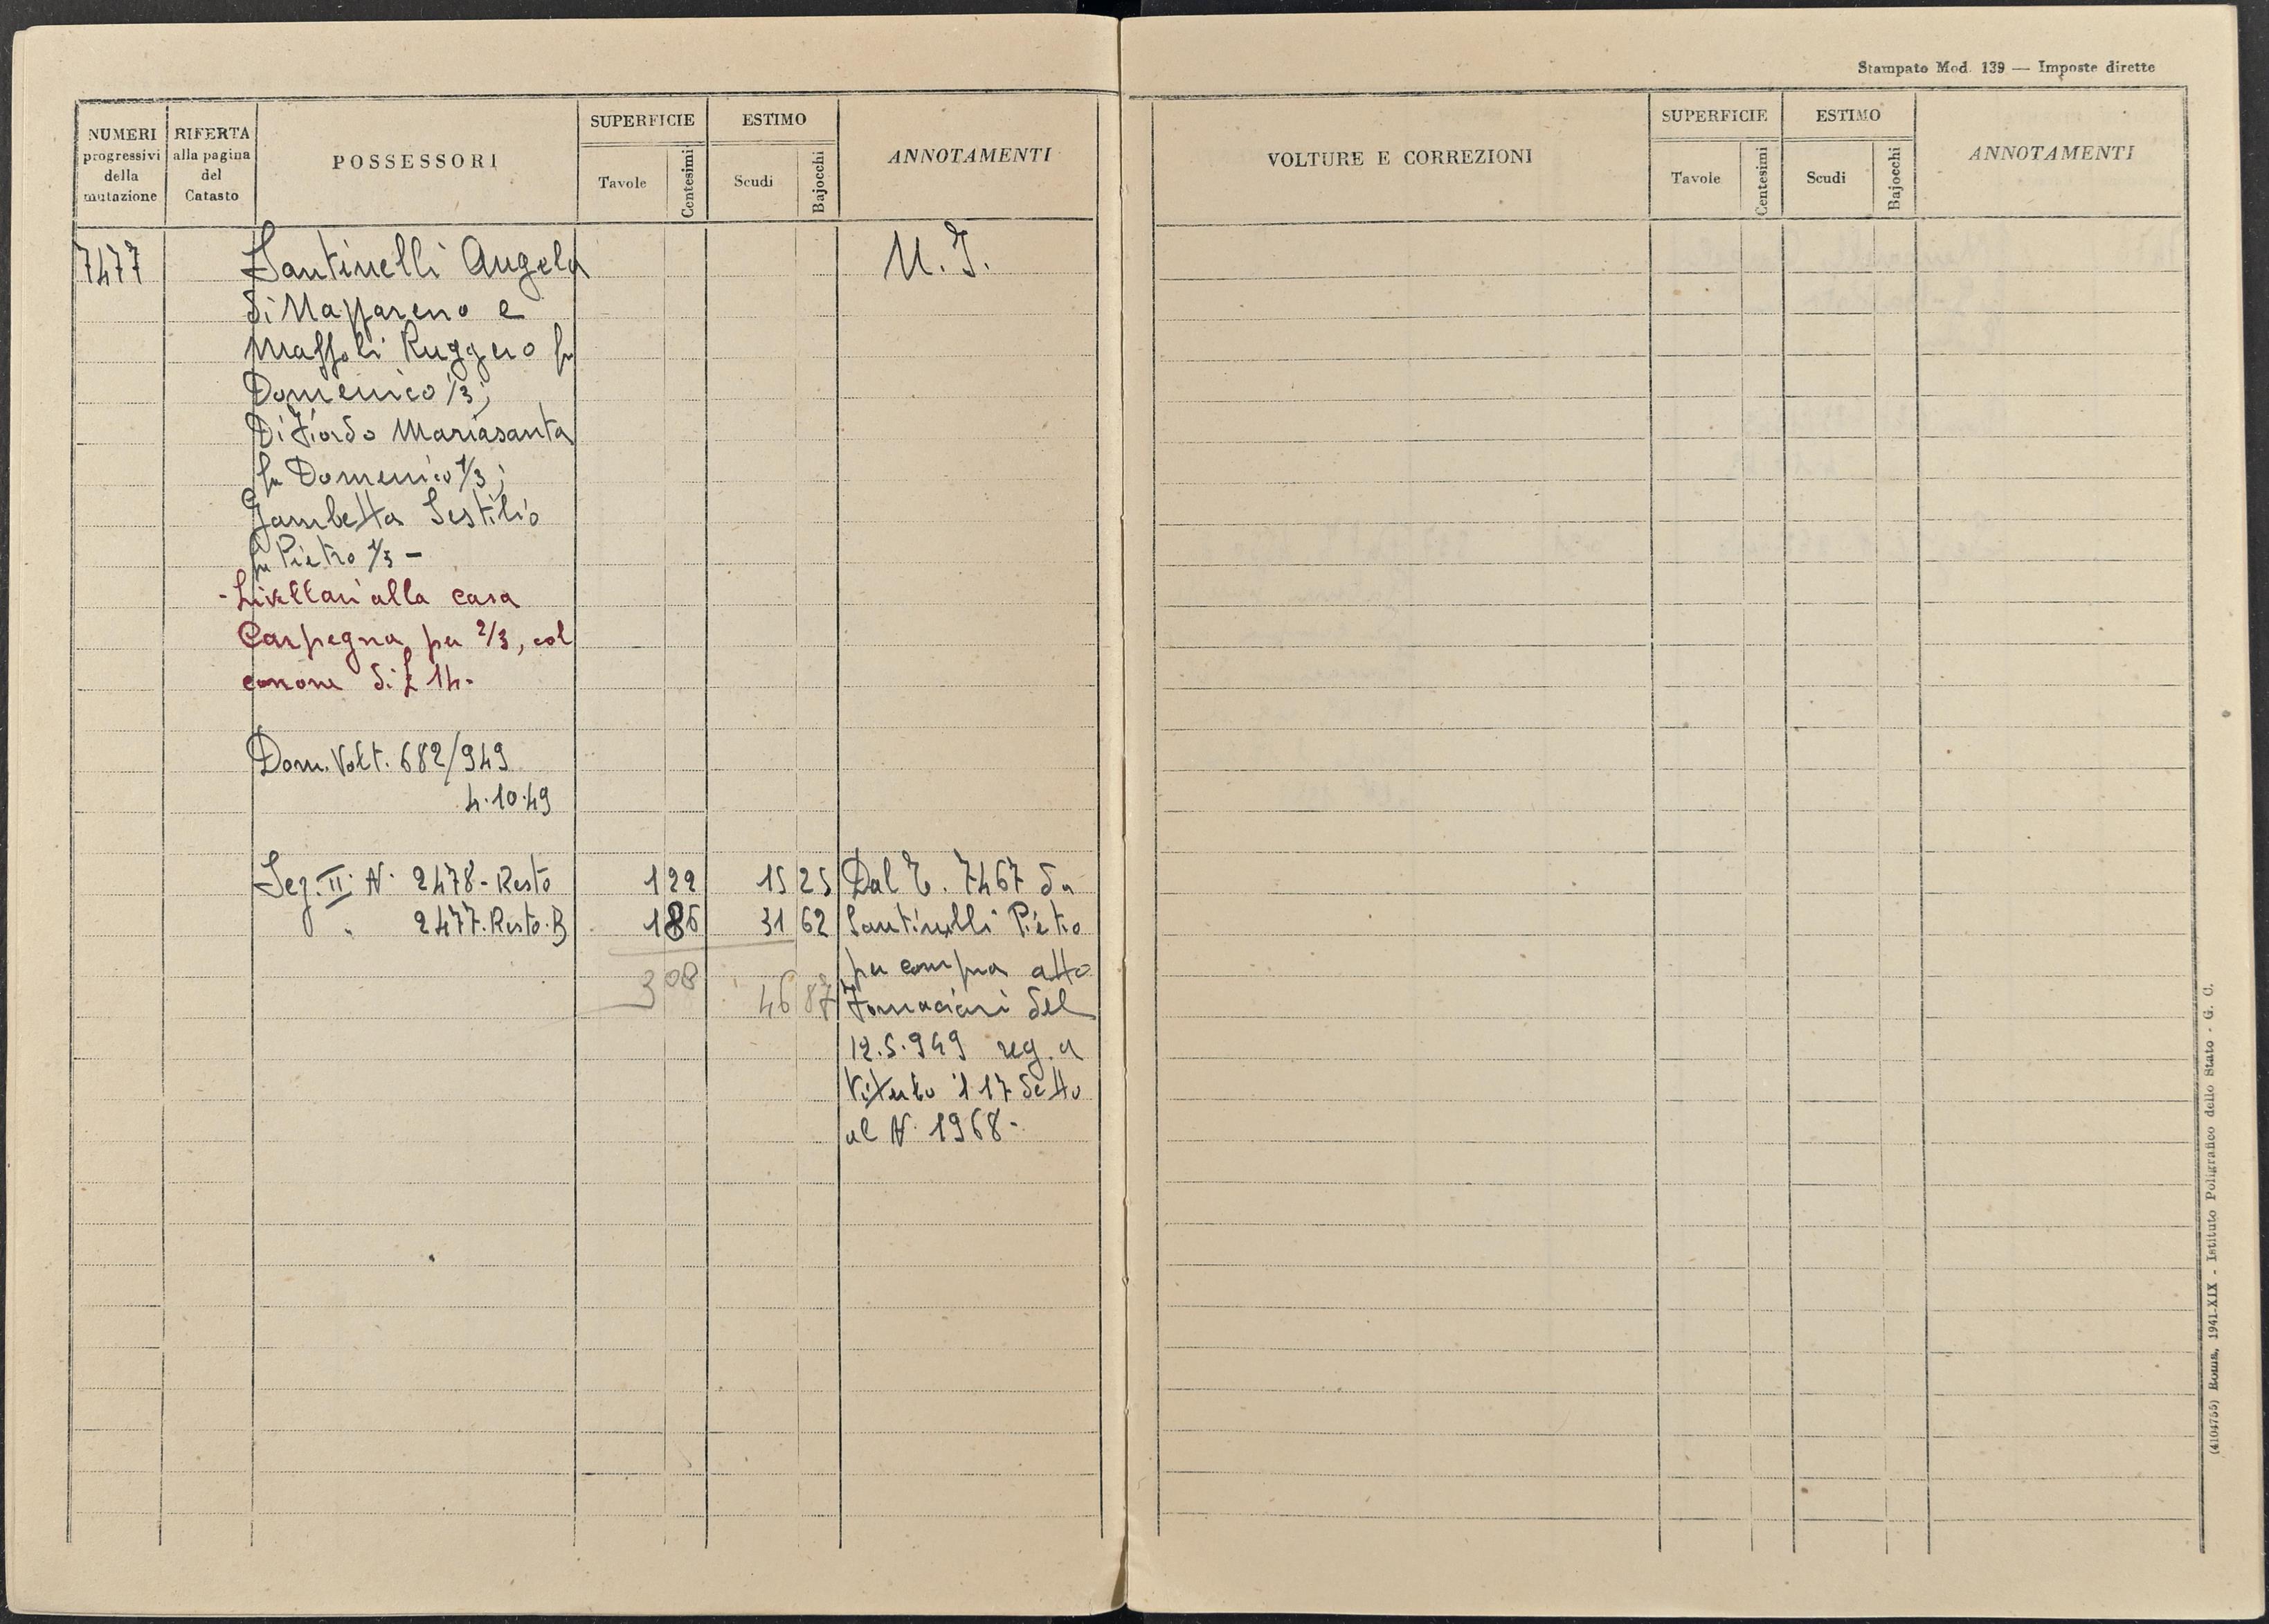 Stampato Mod. 139 — Imposte dirette
NUMERI progressivi della mutazione
RIFERTA alla pagina del Catasto
POSSESSORI
SUPERFICIE
Tavole
Centesimi
ESTIMO
Scudi
Bajocchi
ANNOTAMENTI
7477
Santinelli Angela
U. I.
di Nazzareno e
Massoli Ruggero fu
Domenico 1/3;
Di Fiordo Mariasanta
fu Domenico 1/3;
Gambetta Sestilio
fu Pietro 1/3 -
- Livellari alla casa
Carpegna per 2/3, col
canone di £ 14.
Dom. Volt. 682/949
4.10.49
Sez. II. N. 2478 - Resto 1 22 15 25
2477. Resto. B 1 86 31 62
3 08 46 87
Dal T. 7467 da
Santinelli Pietro
per compra atto
Fornaciari del
12.5.949 reg. a
Viterbo il 17 detto
al N. 1968 -
VOLTURE E CORREZIONI
SUPERFICIE
Tavole
Centesimi
ESTIMO
Scudi
Bajocchi
ANNOTAMENTI
(4104755) Roma, 1941-XIX - Istituto Poligrafico dello Stato - G. C.